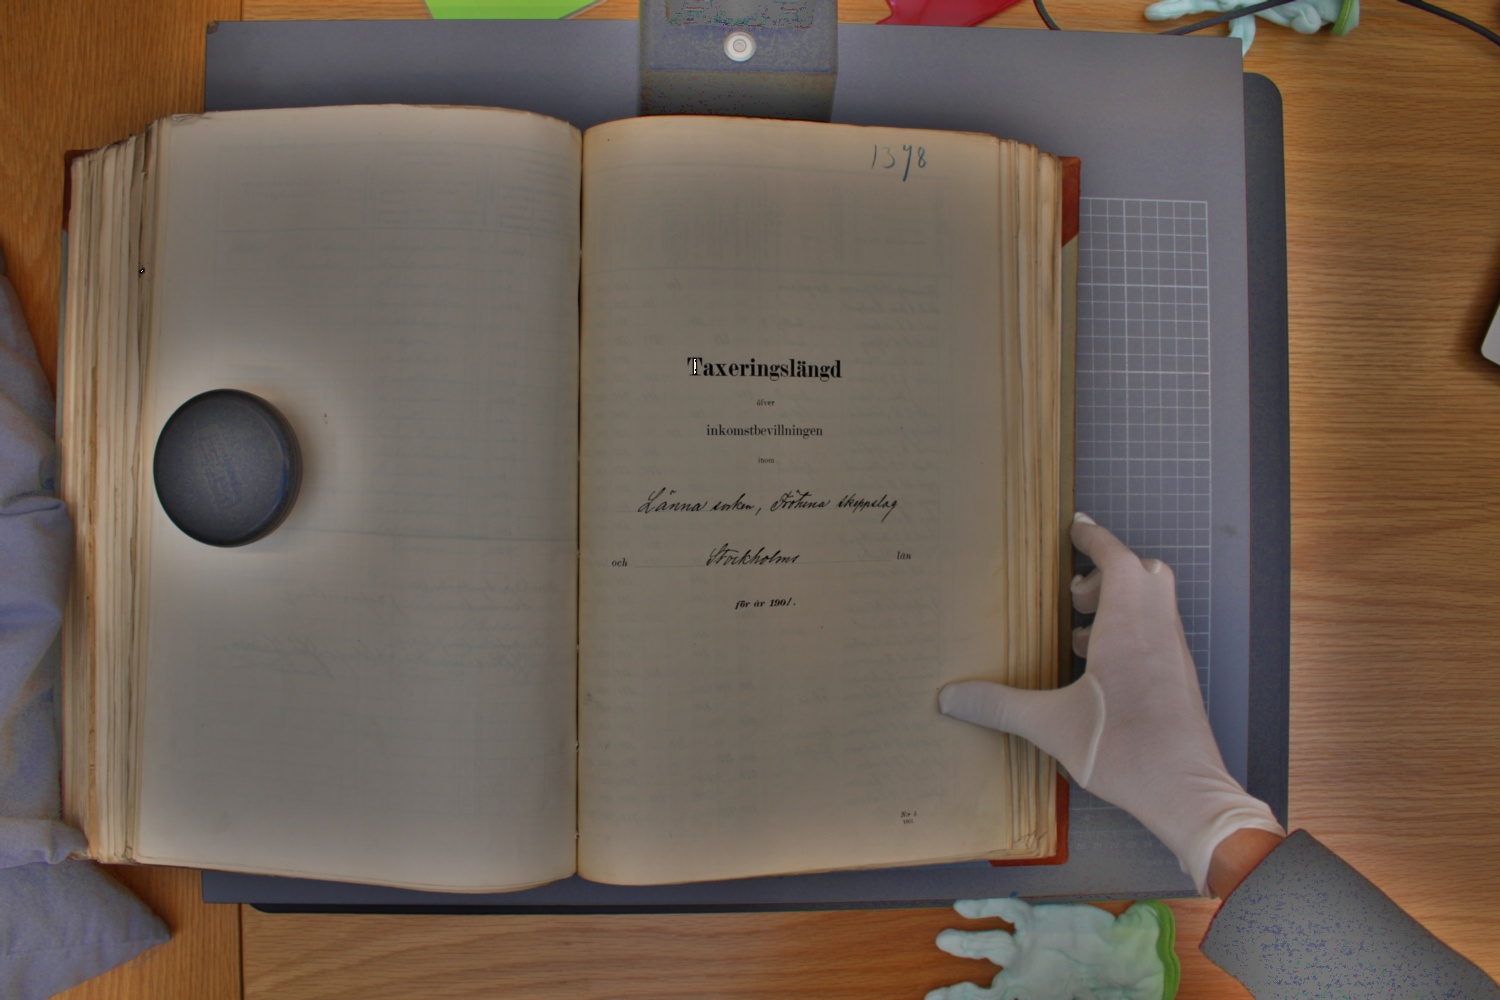 1378
Taxeringslängd
öfver
inkomstbevillningen
inom
Länna socken, Frötuna skeppslag
och Stockholms län
för år 1901.
Nr 5